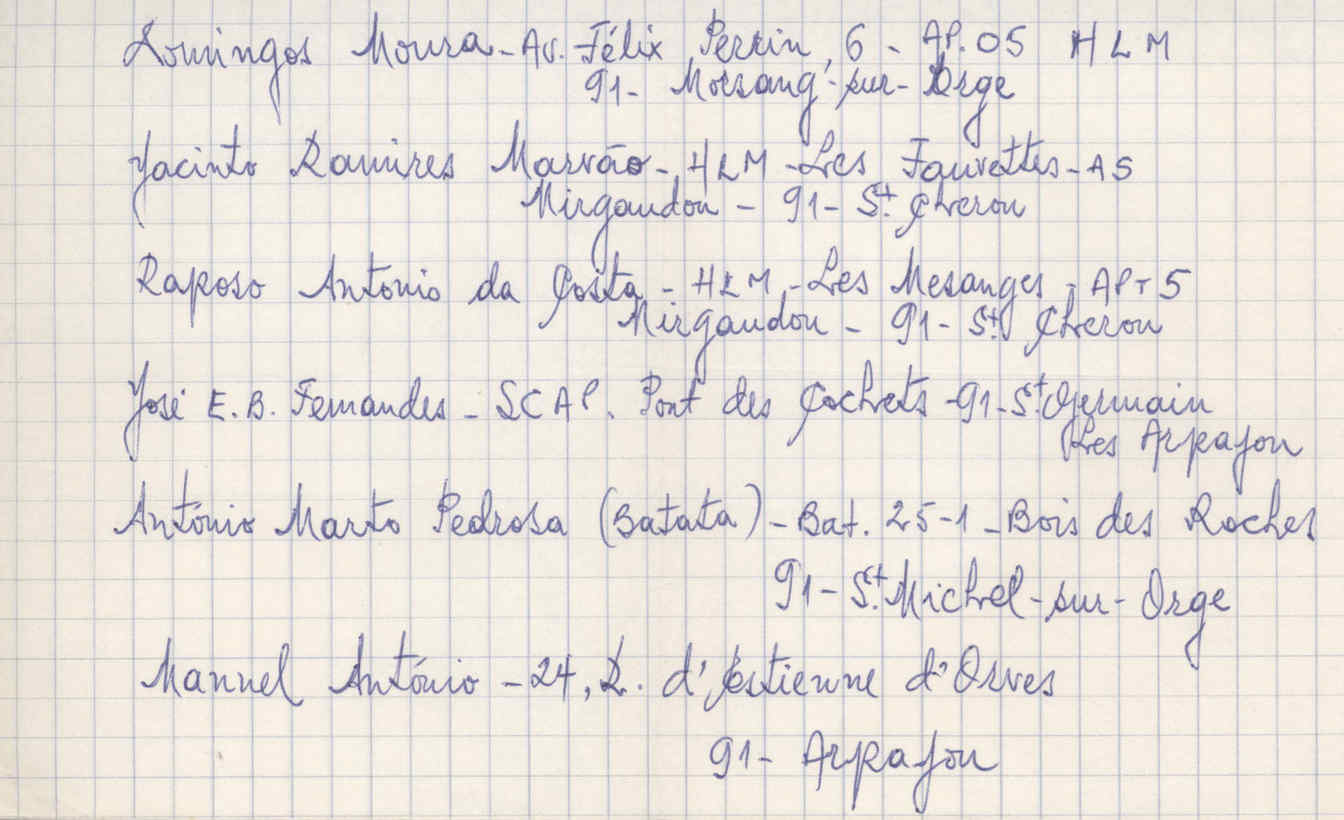 Domingos Moura - Av. Félix Perrin, 6 - AP. 05 HLM
91- Morsang-sur-Orge
Jacinto Ramires Marvão - HLM - Les Fauvettes - A5
Mirgaudon - 91- St. Cheron
Raposo António da Costa - HLM - Les Mesanges - APT 5
Mirgaudon - 91- St. Cheron
José E. B. Fernandes - SCAP. Pont des Cochets - 91- St. Germain
Les Arpajon
António Marto Pedrosa (Batata) - Bat. 25-1 - Bois des Roches
91- St. Michel-sur-Orge
Manuel António - 24, R. d'Estienne d'Orves
91- Arpajon